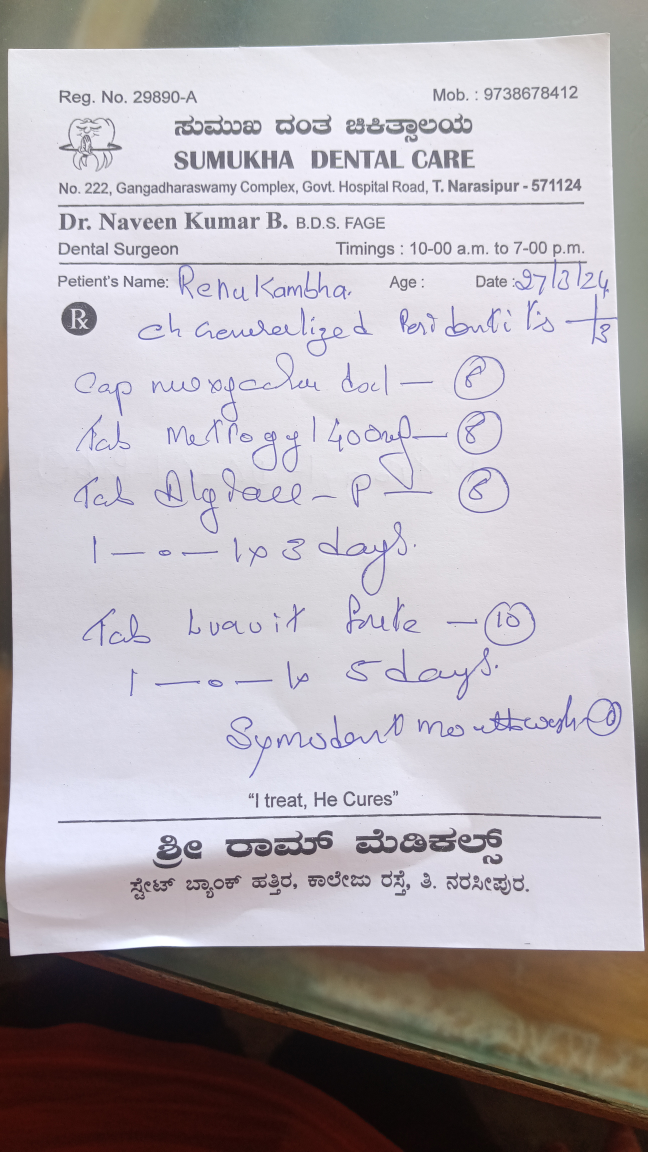 Reg. No. 29890-A Mob. : 9738678412
ಸುಮುಖ ದಂತ ಚಿಕಿತ್ಸಾಲಯ
SUMUKHA DENTAL CARE
No. 222, Gangadharaswamy Complex, Govt. Hospital Road, T. Narasipur - 571124
Dr. Naveen Kumar B. B.D.S. FAGE
Dental Surgeon Timings : 10-00 a.m. to 7-00 p.m.
Petient's Name: Renukambha. Age : Date : 27/3/24
Rx ch Generalized Periodontitis
Cap — 8
Tab Metrogyl 400mg — 8
Tab - P — 8
1 — 0 — 1 x 3 days.
Tab forte — 10
1 — 0 — 1 x 5 days.
mouthwash
"I treat, He Cures"
ಶ್ರೀ ರಾಮ್ ಮೆಡಿಕಲ್ಸ್
ಸ್ಟೇಟ್ ಬ್ಯಾಂಕ್ ಹತ್ತಿರ, ಕಾಲೇಜು ರಸ್ತೆ, ತಿ. ನರಸೀಪುರ.